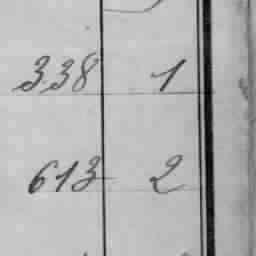 338 1
613 2